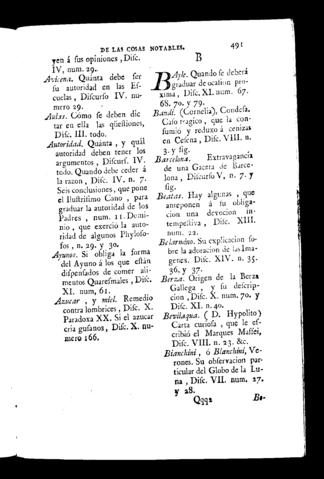 DE LAS COSAS NOTABLES. 491
yen á sus opiniones, Disc.
IV, num. 29.
Avicena. Quánta debe ser
su autoridad en las Es-
cuelas, Discurso IV. nu-
mero 29.
Aulas. Cómo se deben dic
tar en ella las qüestiones,
Disc. III. todo.
Autoridad. Quánta, y quál
autoridad deben tener los
argumentos, Discurs. IV.
todo. Quando debe ceder á
la razon, Disc. IV. n. 7.
Seis conclusiones, que pone
el Ilustrisimo Cano, para
graduar la autoridad de los
Padres, num. 11. Domi-
nio, que exerció la auto-
ridad de algunos Phyloso-
fos, n. 29. y 30.
Ayunos. Si obliga la forma
del Ayuno á los que están
dispensados de comer ali-
mentos Quaresmales, Disc.
XI. num, 61.
Azucar, y miel. Remedio
contra lombrices, Disc. X.
Paradoxa XX. Si el azucar
cria gusanos, Disc. X. nu-
mero 166.
B
BAyle. Quando se deberá
graduar de ocasion pro-
xima, Disc. XI. num. 67.
68. 70. y 79.
Bandi. (Cornelia), Condesa.
Caso tragico, que la con-
sumió y reduxo á cenizas
en Cesena, Disc. VIII. n.
3. y sig.
Barcelona. Extravagancia
de una Gaceta de Barce-
lona, Discurso V, n. 7. y
sig.
Beatas. Hay algunas, que
anteponen á su obliga-
cion una devocion in-
tempestiva, Disc. XIII.
num. 22.
Belarmino. Su explicacion so-
bre la adoracion de las Ima-
genes. Disc. XIV. n. 35.
36. y 37.
Berza. Origen de la Berza
Gallega, y su descrip-
cion, Disc. X. num. 70. y
Disc. XI. n. 40.
Bevilaqua. (D. Hypolito)
Carta curiosa, que le es-
cribió el Marques Maffei,
Disc. VIII. n. 23. &c.
Bianchini, ó Blanchini, Ve-
rones. Su observacion par-
ticular del Globo de la Lu-
na, Disc. VII. num. 27.
y 28.
Qqq2 Bo-